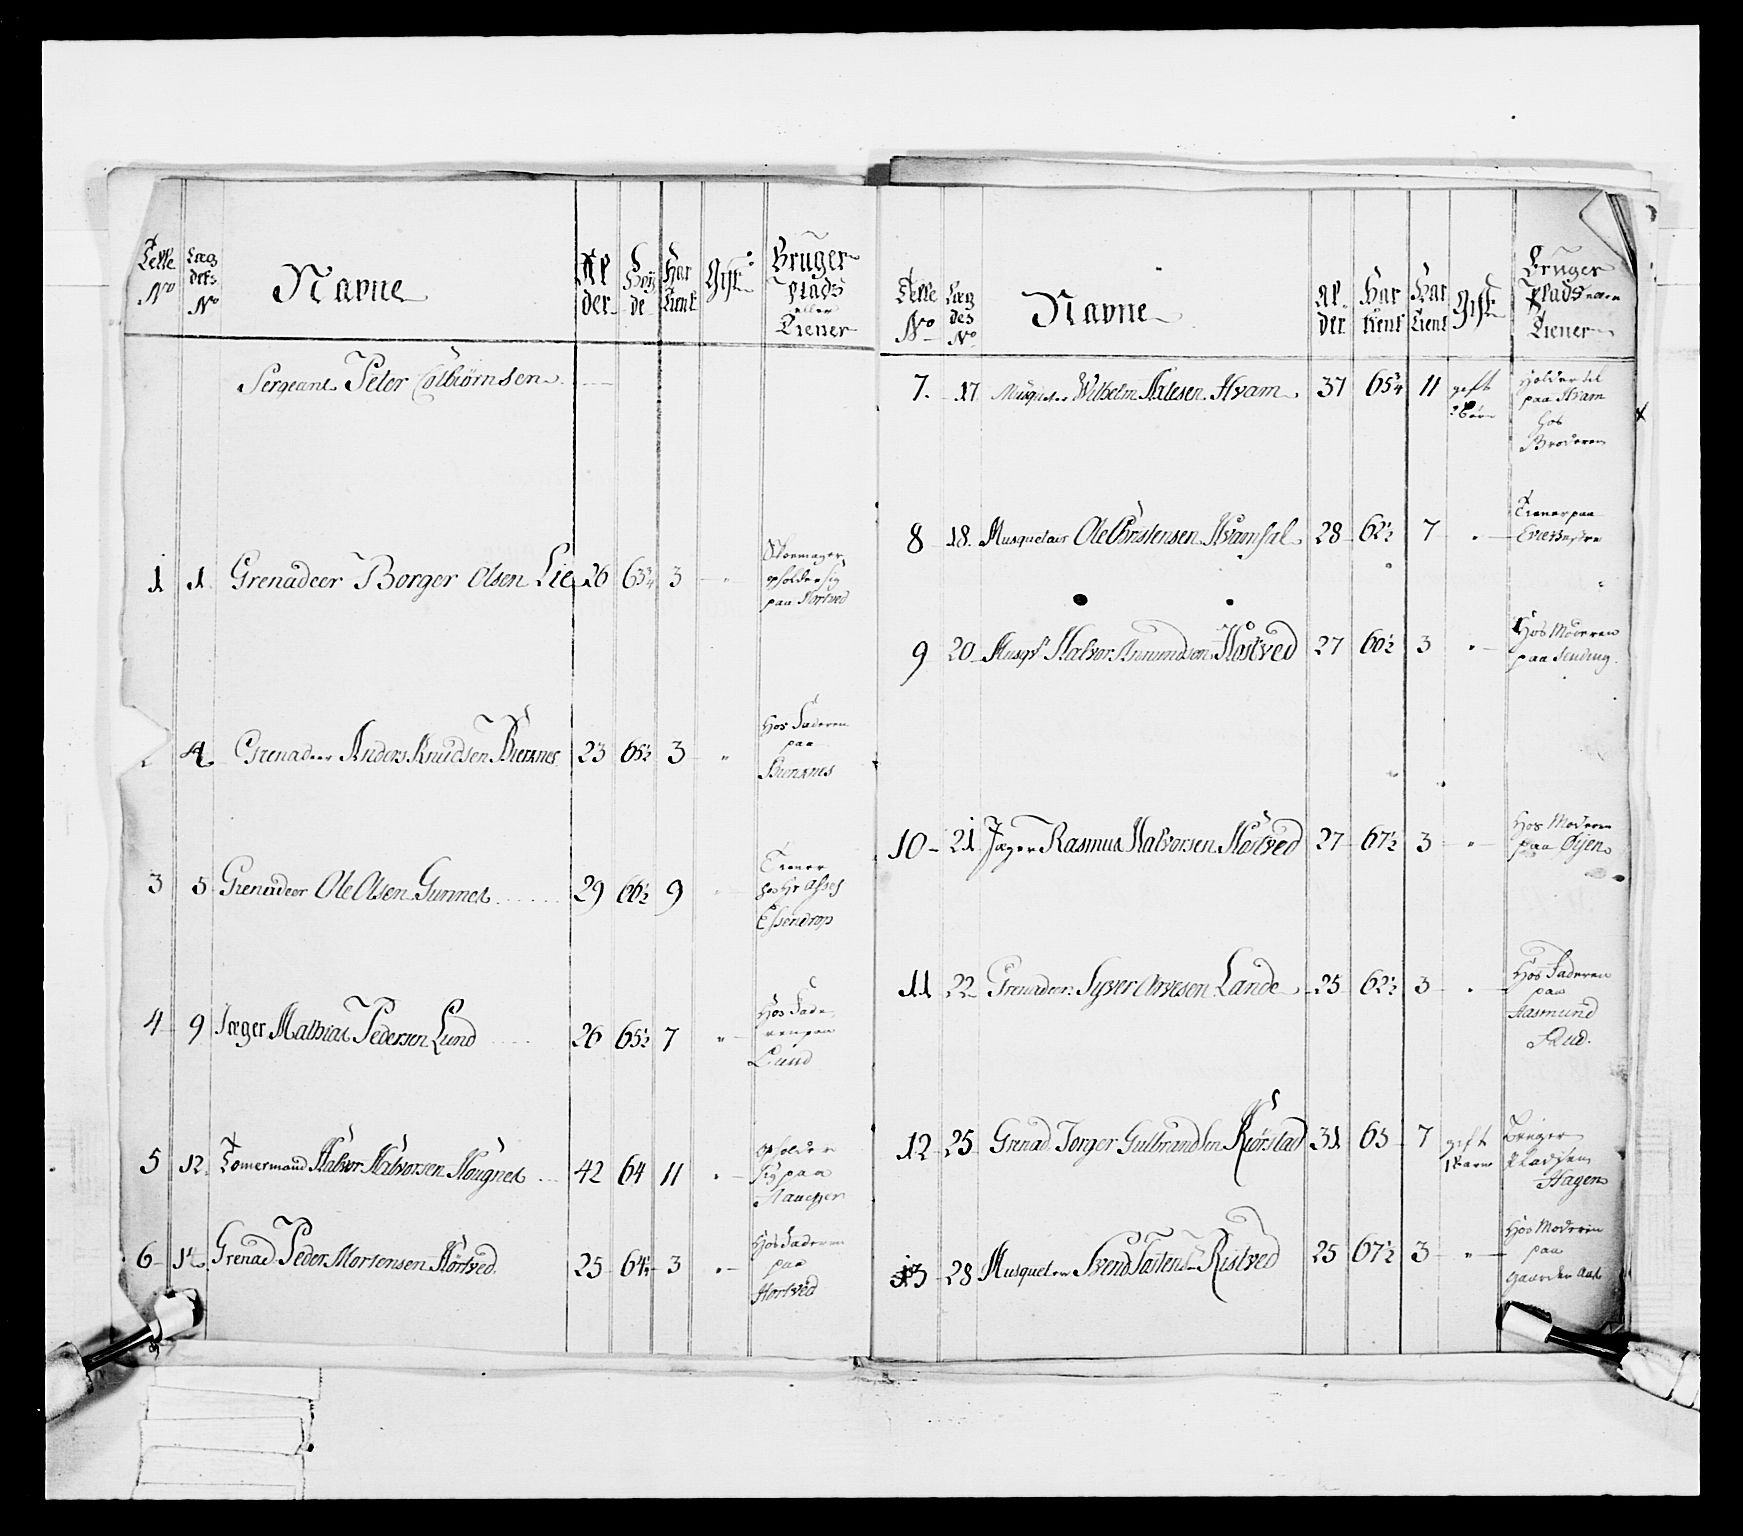 Telle No
Læg dets No
Navne
Al der
Høy de
Har tient
Gift
Bruger Plads eller Tiener
Sergeant Peter Colbiørnsen
1 1 Grenadeer Borger Olsen Lie 26 63¾ 3 "
Skoemager
opholder sig
paa Hortved
4 Grenadeer Anders Knudsen Bierknes 23 65½ 3 "
Hos Faderen
paa
Bierknes
3 5 Grenadeer Ole Olsen Gunnes 29 66½ 9
Tiener
hos Hr
Essendrop
4 9 Jæger Mathias Pedersen Lund 26 65½ 7 "
Hos Fade
ren paa
Lund
5 12 Tømermand Halvor Halvorsen Hougnes 42 64 11 "
opholder
sig paa
6 14 Grenad Peder Mortensen Hörtved 25 64½ 3 "
Hos Faderen
paa
Hortved
Telle No
Læg des No
Navne
Al der
Har tient
Har Tient
Gift
Bruger Plads
Tiener
7 17 Musqueter Wilhelm Hvam 37 65¾ 11 gift
2 Børn
Holder til
paa Hvam
hos
Broderen
8 18 Musqueteir Ole Christensen 28 62½ 7 "
Tiener paa
9 20 Musqt Halvor Amundsen Höstved 27 60½ 3 "
Hos Moderen
paa
10 21 Jæger Rasmus Halvorsen Höstved 27 67½ 3 "
Hos Moderen
paa Øijen
11 22 Grenadeer Syver Lande 25 62½ 3 "
Hos Faderen
paa
Aasmund
Rud
12 25 Grenad Torger Gulbrandsen Kiörstad 31 63 7 gift
1 Barn
Bruger
Pladsen
Hagen
13 28 Musqueteer Svend Tostensen Ristved 25 67½ 3 "
Hos Moderen
paa
gaarden